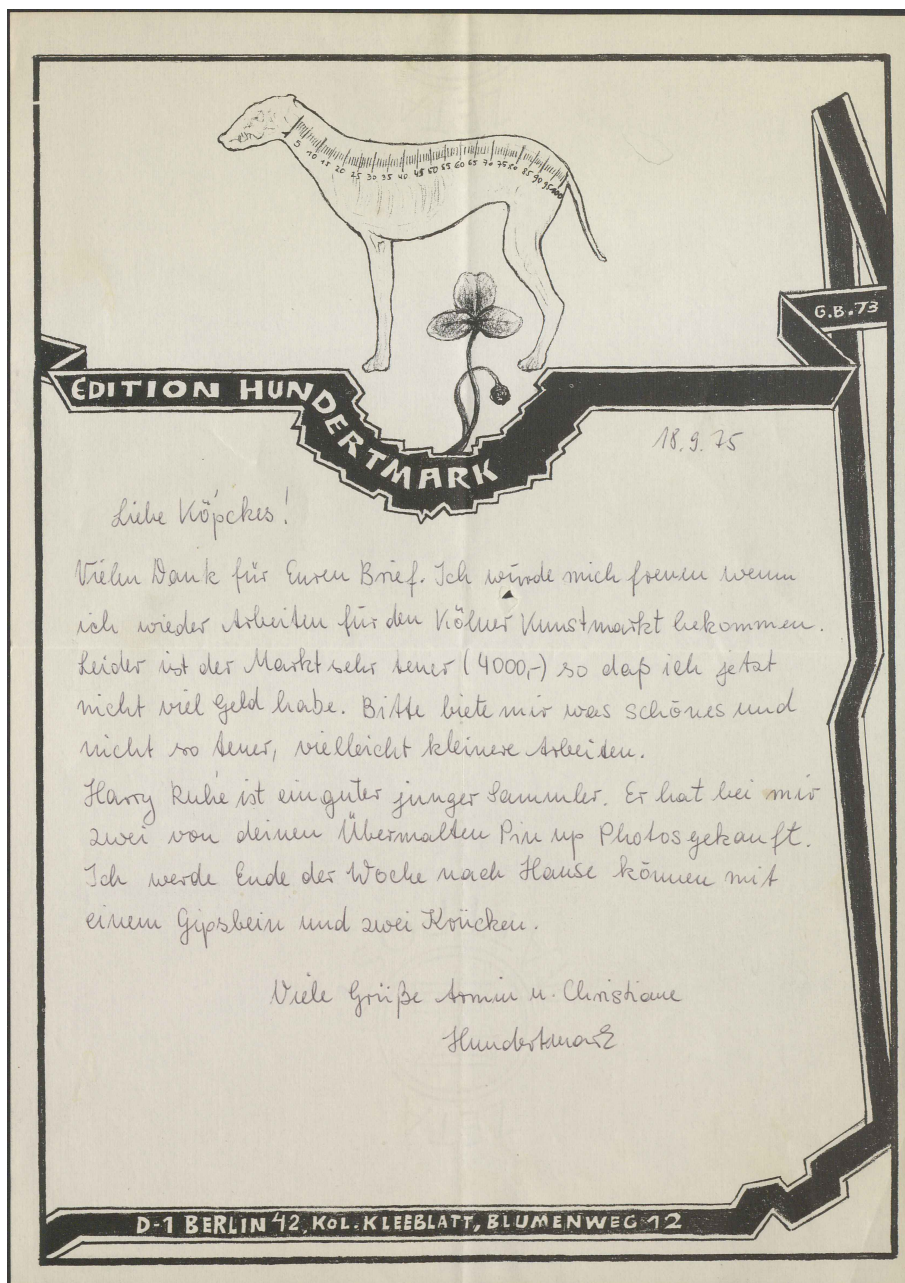 5 10 15 20 25 30 35 40 45 50 55 60 65 70 75 80 85 90 95 100
G.B.73
EDITION HUNDERTMARK
18.9.75
Liebe Köpckes!
Vielen Dank für Euren Brief. Ich würde mich freuen wenn
ich wieder Arbeiten für den Kölner Kunstmarkt bekommen.
Leider ist der Markt sehr teuer (4000,-) so daß ich jetzt
nicht viel Geld habe. Bitte biete mir was schönes und
nicht so teuer, vielleicht kleinere Arbeiten.
Harry Ruhé ist ein guter junger Sammler. Er hat bei mir
zwei von deinen Übermalten Pin up Photos gekauft.
Ich werde Ende der Woche nach Hause können mit
einem Gipsbein und zwei Krücken.
Viele Grüße Armin u. Christiane
Hundertmark
D-1 BERLIN 42, KOL. KLEEBLATT, BLUMENWEG 12